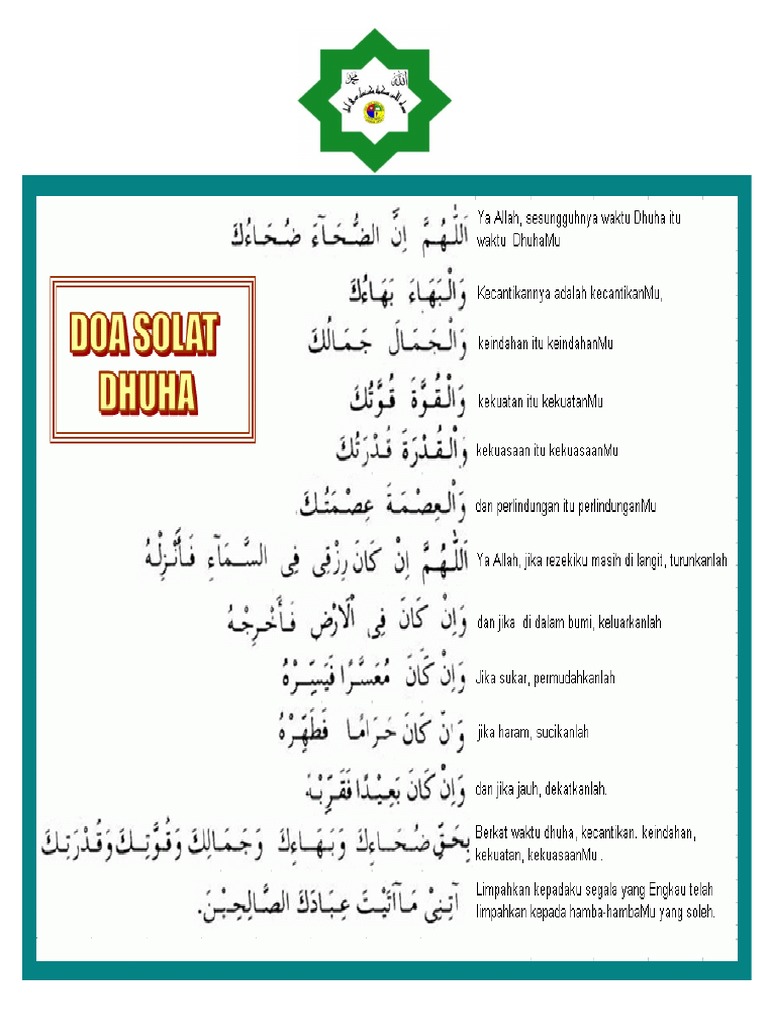 الله
محمد
DOA SOLAT
DHUHA
اَللّٰهُمَّ اِنَّ الضُّحَآءَ ضُحَاءُكَ
Ya Allah, sesungguhnya waktu Dhuha itu
waktu DhuhaMu
وَالْبَهَاءَ بَهَاءُكَ
Kecantikannya adalah kecantikanMu,
وَالْجَمَالَ جَمَالُكَ
keindahan itu keindahanMu
وَالْقُوَّةَ قُوَّتُكَ
kekuatan itu kekuatanMu
وَالْقُدْرَةَ قُدْرَتُكَ
kekuasaan itu kekuasaanMu
وَالْعِصْمَةَ عِصْمَتُكَ
dan perlindungan itu perlindunganMu
اَللّٰهُمَّ اِنْ كَانَ رِزْقِى فِى السَّمَآءِ فَأَنْزِلْهُ
Ya Allah, jika rezekiku masih di langit, turunkanlah
وَاِنْ كَانَ فِى اْلاَرْضِ فَأَخْرِجْهُ
dan jika di dalam bumi, keluarkanlah
وَاِنْ كَانَ مُعَسَّرًا فَيَسِّرْهُ
Jika sukar, permudahkanlah
وَاِنْ كَانَ حَرَامًا فَطَهِّرْهُ
jika haram, sucikanlah
وَاِنْ كَانَ بَعِيْدًا فَقَرِّبْهُ
dan jika jauh, dekatkanlah.
بِحَقِّ ضُحَاءِكَ وَبَهَاءِكَ وَجَمَالِكَ وَقُوَّتِكَ وَقُدْرَتِكَ
Berkat waktu dhuha, kecantikan. keindahan,
kekuatan, kekuasaanMu .
آتِنِىْ مَآاَتَيْتَ عِبَادَكَ الصَّالِحِيْنَ.
Limpahkan kepadaku segala yang Engkau telah
limpahkan kepada hamba-hambaMu yang soleh.